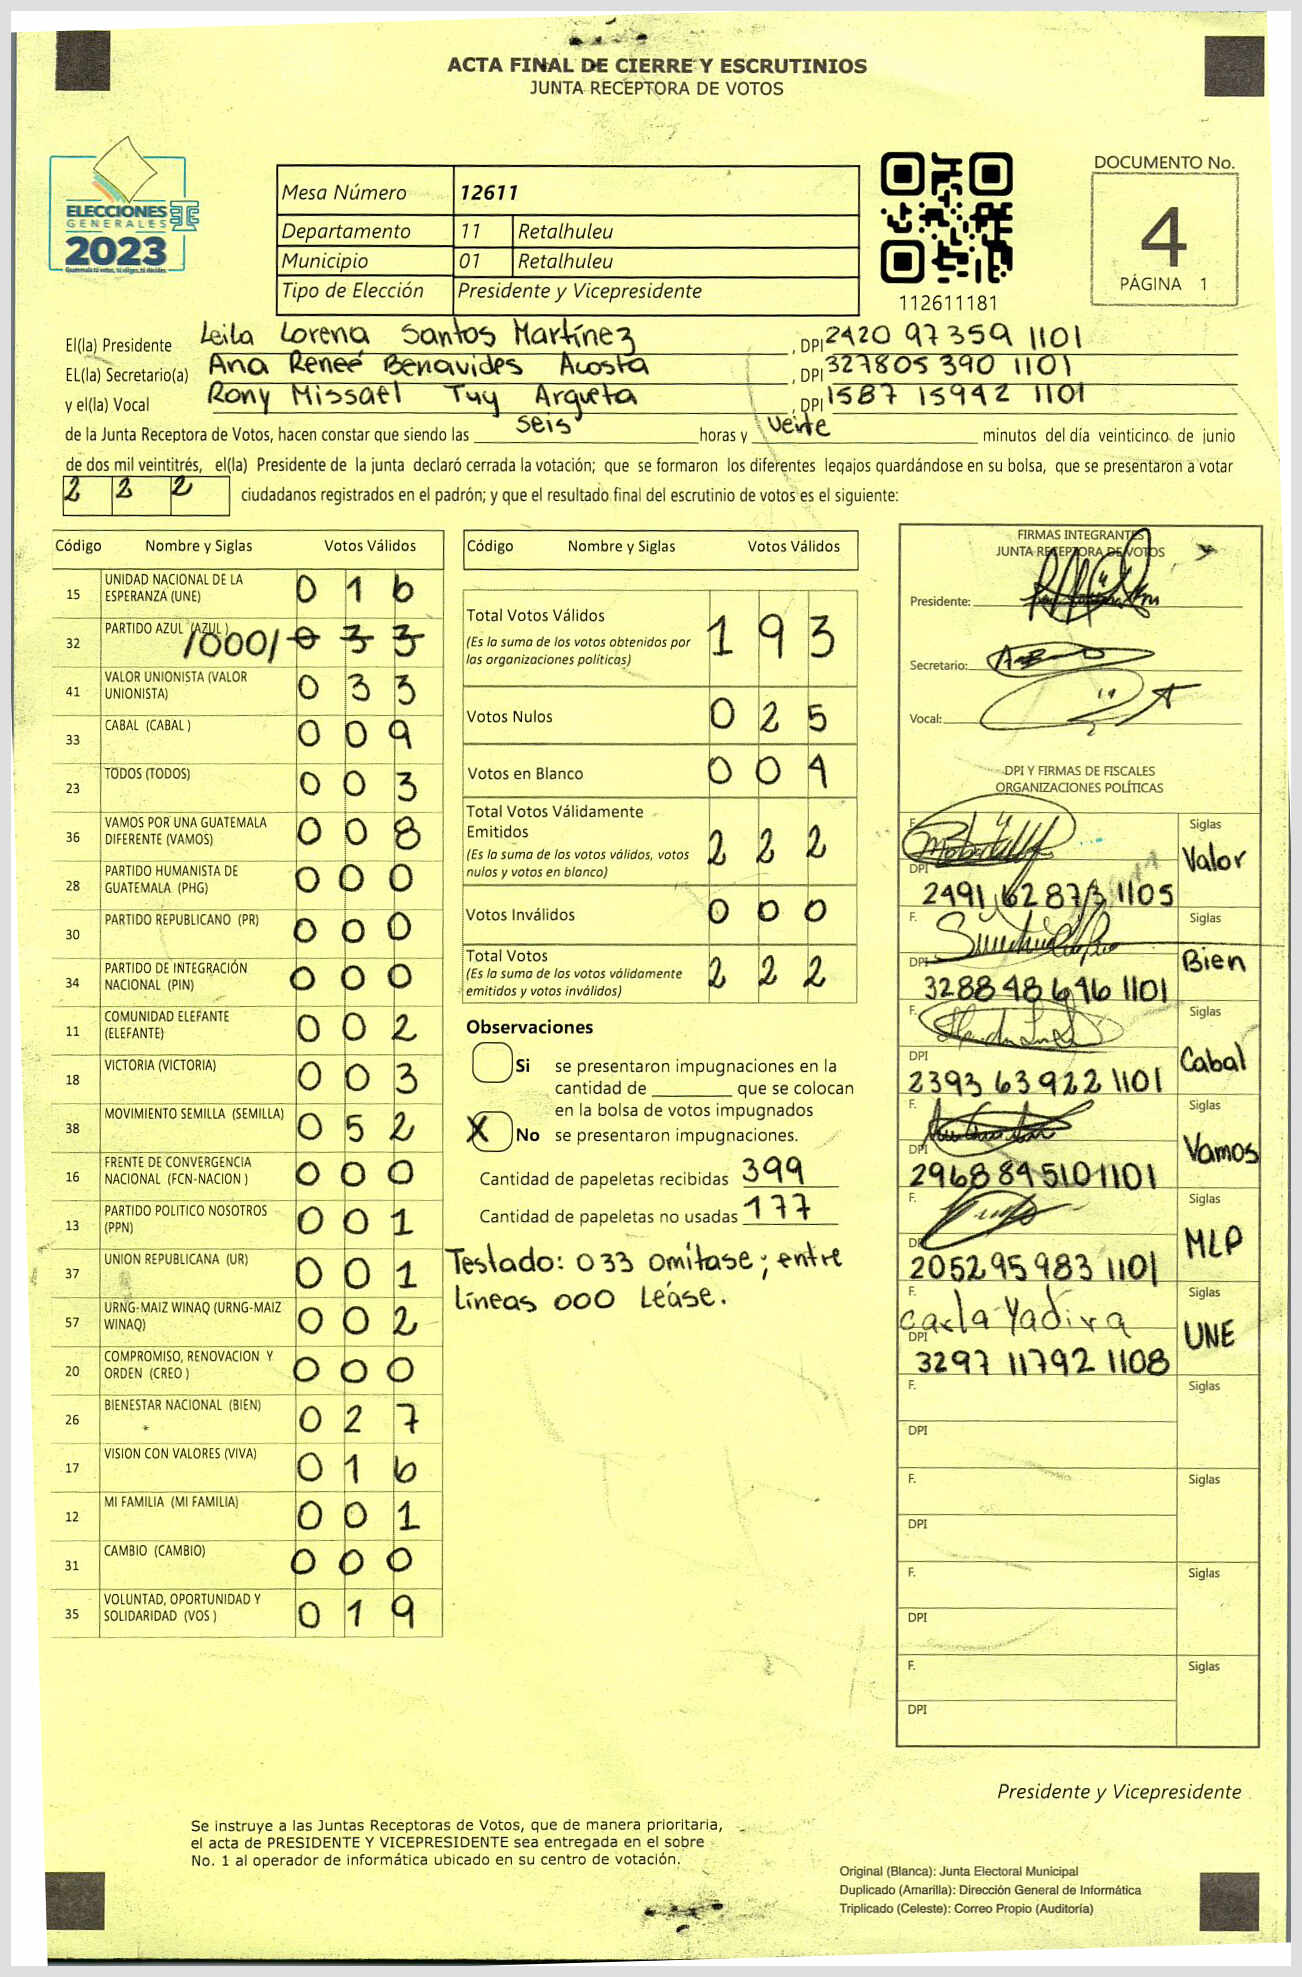 ACTA FINAL DE CIERRE Y ESCRUTINIOS
JUNTA RECEPTORA DE VOTOS
ELECCIONES
GENERALES
2023
Guatemala tú votas, tú eliges, tú decides.
Mesa Número 12611
Departamento 11 Retalhuleu
Municipio 01 Retalhuleu
Tipo de Elección Presidente y Vicepresidente
112611181
DOCUMENTO No.
4
PÁGINA 1
El(la) Presidente Leila Lorena Santos Martínez, DPI 2420 97359 1101
EL(la) Secretario(a) Ana Reneé Benavides Acosta, DPI 327805390 1101
y el(la) Vocal Rony Missael Tuy Argueta, DPI 1587 15942 1101
de la Junta Receptora de Votos, hacen constar que siendo las seis horas y veinte minutos del día veinticinco de junio
de dos mil veintitrés, el(la) Presidente de la junta declaró cerrada la votación; que se formaron los diferentes legajos guardándose en su bolsa, que se presentaron a votar
2 2 2 ciudadanos registrados en el padrón; y que el resultado final del escrutinio de votos es el siguiente:
Código Nombre y Siglas Votos Válidos
15 UNIDAD NACIONAL DE LA ESPERANZA (UNE) 0 1 6
32 PARTIDO AZUL (AZUL) /000/ 0 3 3
41 VALOR UNIONISTA (VALOR UNIONISTA) 0 3 3
33 CABAL (CABAL ) 0 0 9
23 TODOS (TODOS) 0 0 3
36 VAMOS POR UNA GUATEMALA DIFERENTE (VAMOS) 0 0 8
28 PARTIDO HUMANISTA DE GUATEMALA (PHG) 0 0 0
30 PARTIDO REPUBLICANO (PR) 0 0 0
34 PARTIDO DE INTEGRACIÓN NACIONAL (PIN) 0 0 0
11 COMUNIDAD ELEFANTE (ELEFANTE) 0 0 2
18 VICTORIA (VICTORIA) 0 0 3
38 MOVIMIENTO SEMILLA (SEMILLA) 0 5 2
16 FRENTE DE CONVERGENCIA NACIONAL (FCN-NACION ) 0 0 0
13 PARTIDO POLITICO NOSOTROS (PPN) 0 0 1
37 UNION REPUBLICANA (UR) 0 0 1
57 URNG-MAIZ WINAQ (URNG-MAIZ WINAQ) 0 0 2
20 COMPROMISO, RENOVACION Y ORDEN (CREO ) 0 0 0
26 BIENESTAR NACIONAL (BIEN) 0 2 7
17 VISION CON VALORES (VIVA) 0 1 6
12 MI FAMILIA (MI FAMILIA) 0 0 1
31 CAMBIO (CAMBIO) 0 0 0
35 VOLUNTAD, OPORTUNIDAD Y SOLIDARIDAD (VOS ) 0 1 9
Código Nombre y Siglas Votos Válidos
Total Votos Válidos 1 9 3
(Es la suma de los votos obtenidos por
las organizaciones políticas)
Votos Nulos 0 2 5
Votos en Blanco 0 0 4
Total Votos Válidamente
Emitidos 2 2 2
(Es la suma de los votos válidos, votos
nulos y votos en blanco)
Votos Inválidos 0 0 0
Total Votos 2 2 2
(Es la suma de los votos válidamente
emitidos y votos inválidos)
Observaciones
Si se presentaron impugnaciones en la
cantidad de ________ que se colocan
en la bolsa de votos impugnados
X No se presentaron impugnaciones.
Cantidad de papeletas recibidas 399
Cantidad de papeletas no usadas 177
Testado: 033 omítase; entre
líneas 000 Léase.
FIRMAS INTEGRANTES
JUNTA RECEPTORA DE VOTOS
Presidente:
Secretario:
Vocal:
DPI Y FIRMAS DE FISCALES
ORGANIZACIONES POLÍTICAS
F. Siglas
DPI 2491 62873 1105 Valor
F. Siglas
DPI 3288 48646 1101 Bien
F. Siglas
DPI 2393 63922 1101 Cabal
F. Siglas
DPI 2968 89510 1101 Vamos
F. Siglas
DPI 2052 95983 1101 MLP
F. Carla Yadira Siglas
DPI 3297 11792 1108 UNE
F. Siglas
DPI
F. Siglas
DPI
F. Siglas
DPI
F. Siglas
DPI
Presidente y Vicepresidente
Se instruye a las Juntas Receptoras de Votos, que de manera prioritaria,
el acta de PRESIDENTE Y VICEPRESIDENTE sea entregada en el sobre
No. 1 al operador de informática ubicado en su centro de votación.
Original (Blanca): Junta Electoral Municipal
Duplicado (Amarilla): Dirección General de Informática
Triplicado (Celeste): Correo Propio (Auditoría)